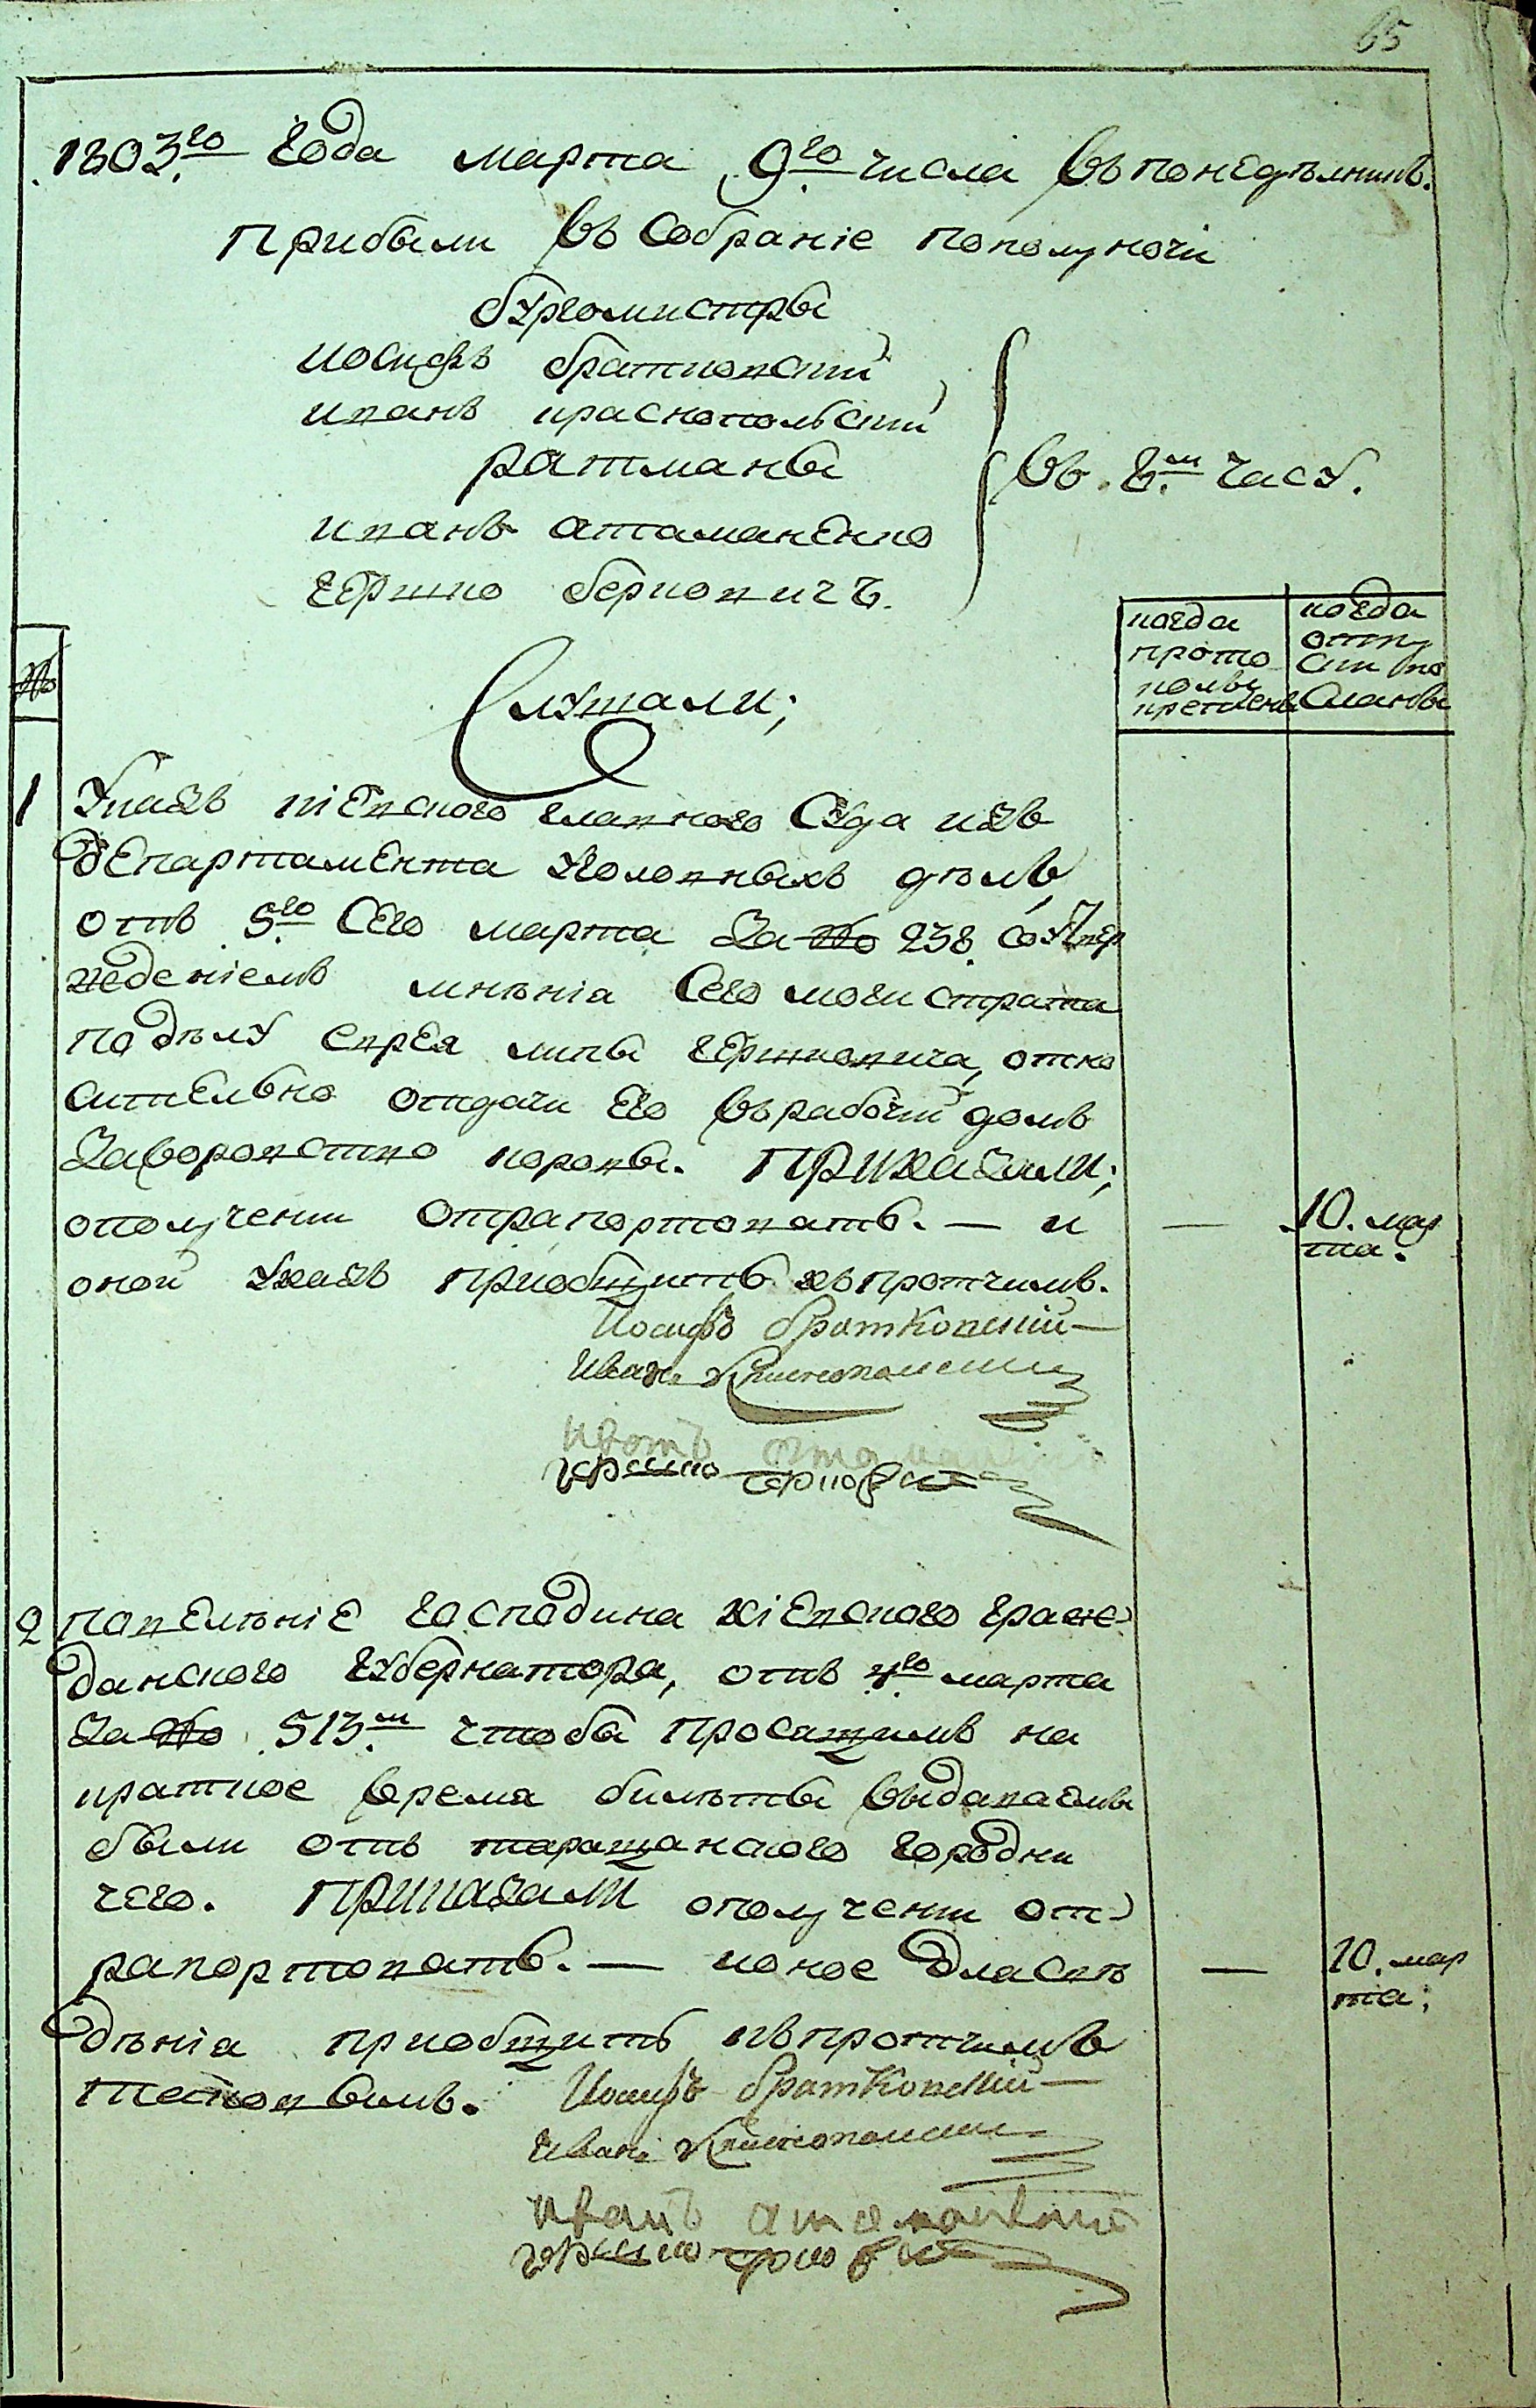 65
1803.го года марта 9.го числа въ понедѣлникъ.
Прибыли въ собраніе пополуночи
бургомистры
Иосифъ Братковский
Иванъ Краснопольский
ратманы
Иванъ Атаманенко
Гершко Берковичъ.
въ 8.м часу.
когда
прото
колы
когда
отпу
сланы
№
Слушали;
1 Указъ кіевского главного суда изъ
департамента уголовныхъ дѣлъ,
отъ 5.го сего марта за № 238. со утвер
жденіемъ мнѣнія сего магистрата
по дѣлу еврея Липы Гершковича, отно
сительно отдачи его в рабочий домъ
за воровство коровы. Приказали;
о получении отрапортовать. — и
оной указъ приобщить къ протчимъ.
— 10. мар
та.
Иосифъ Братковский
Иванъ Краснополский
Иванъ
Гершко Беркович
2 Повелѣніе господина кіевского граж
данского губернатора, отъ 4.го марта
за № 513.м чтобы просящимъ на
краткое время билѣты выдаваемы
были отъ таращанского городни
чего. Приказали о получении от
рапортовать. — и оное для свѣ
дѣнія приобщить къ протчимъ
таковымъ.
— 10. мар
та.
Иосифъ Братковский
Иванъ Краснополский
Иванъ Атаманенко
Гершко Беркович